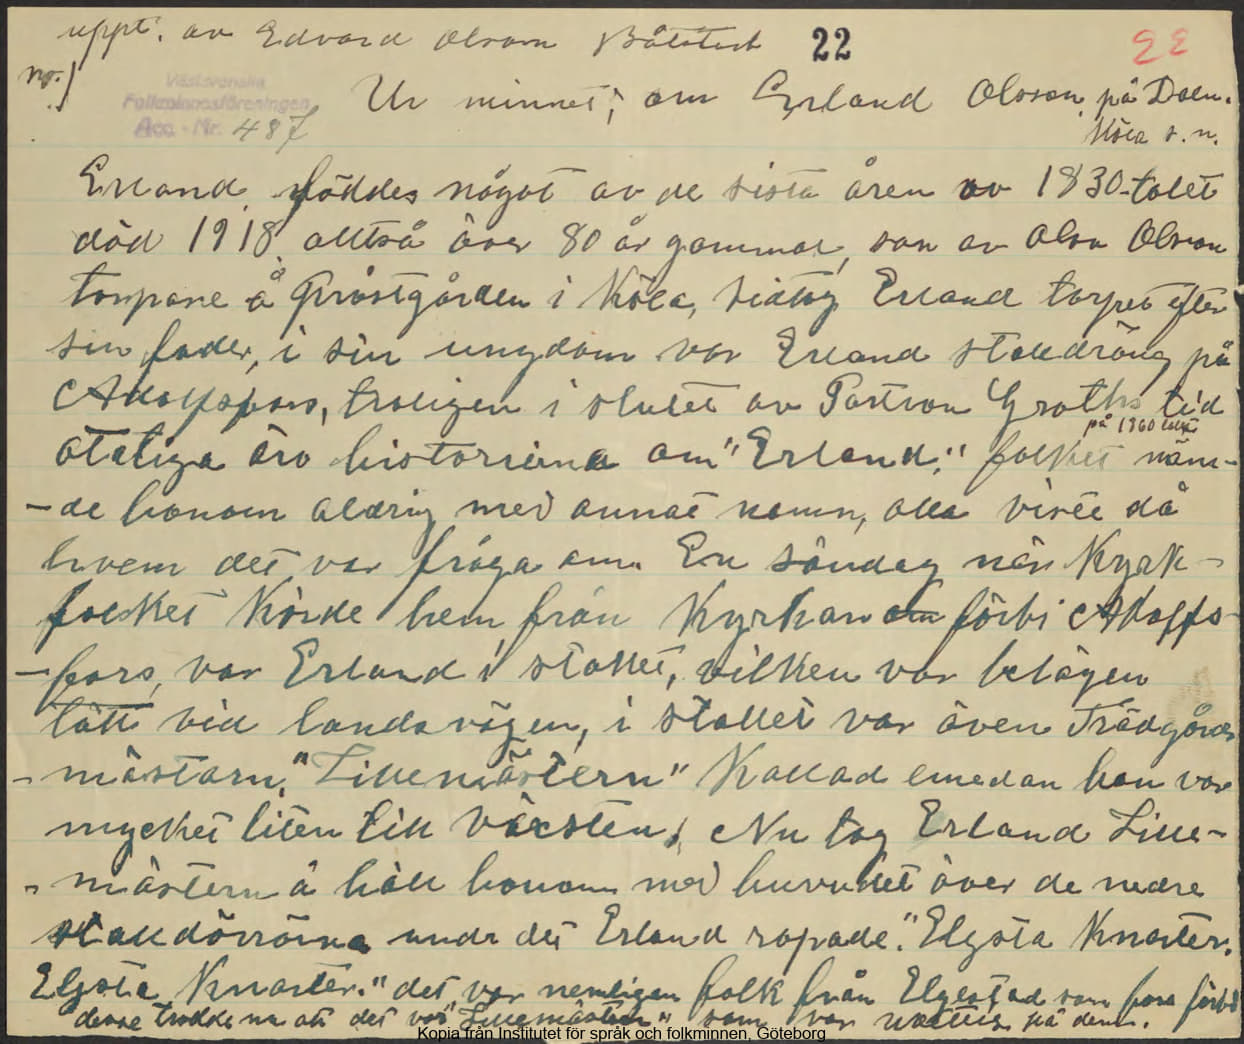 uppt. av Edvard Olsson Båtstad 22 22
no. 1
Västsvenska
Folkminnesföreningen
Acc. Nr. 487
Ur minnet, om Erland Olsson på Dalen.
Köla s.n.
Erland föddes något av de sista åren av 1830-talet
död 1918 alltså över 80 år gammal, son av Olov Olsson
torpare å Prästgården i Köla, sidtog Erland torpet efter
sin fader, i sin ungdom var Erland stalldräng på
Adolfsfors, troligen i slutet av Patron Groths tid
på 1860 talet
otaliga äro historierna om "Erland," folket näm-
-de honom aldrig med annat namn, alla viste då
hvem det var fråga om. En söndag när Kyrk-
folket Körde hem från Kyrkan förbi Adolfs-
-fors, var Erland i stallet, vilken var belägen
tätt vid landsvägen, i stallet var även Trädgårds
-mästarn, "Lillemästern" Kallad emedan han var
mycket liten till växsten, Nu tog Erland Lille-
-mästern å höll honom med huvudet över de nedre
stalldörrarna undr det Erland ropade. "Elgsta Knaster,
Elgsta Knaster." det var nemligen folk från Elgestad som foro förbi
desse trodde nu att det var "Lillemästern" som var på dem.
Kopia från Institutet för språk och folkminnen, Göteborg